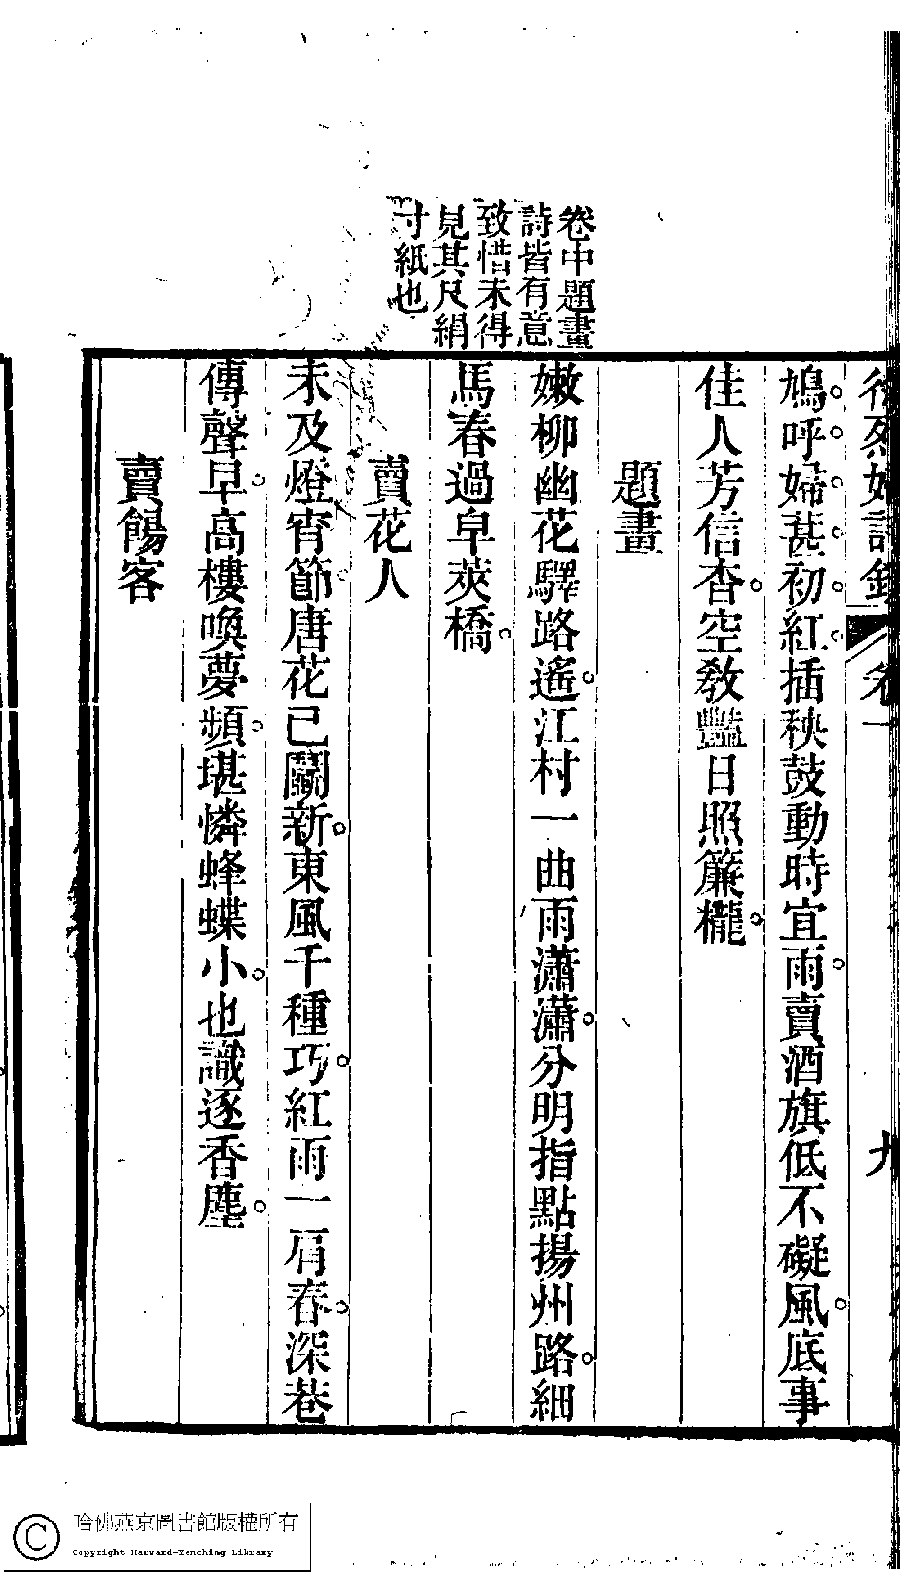 徐烈婦詩鈔 卷一 九
鳩呼婦葚初紅插秧鼓動時宜雨賣酒旗低不礙風底事
佳人芳信杳空教豔日照簾櫳
題畫
嫩柳幽花驛路遙江村一曲雨瀟瀟分明指點揚州路細
馬春過皁莢橋
賣花人
未及燈宵節唐花已鬭新東風千種巧紅雨一肩春深巷
傳聲早高樓喚夢頻堪憐蜂蝶小也識逐香塵
賣餳客
卷中題畫
詩皆有意
致惜未得
見其尺絹
寸紙也
哈佛燕京圖書館版權所有
Copyright Harvard-Yenching Library